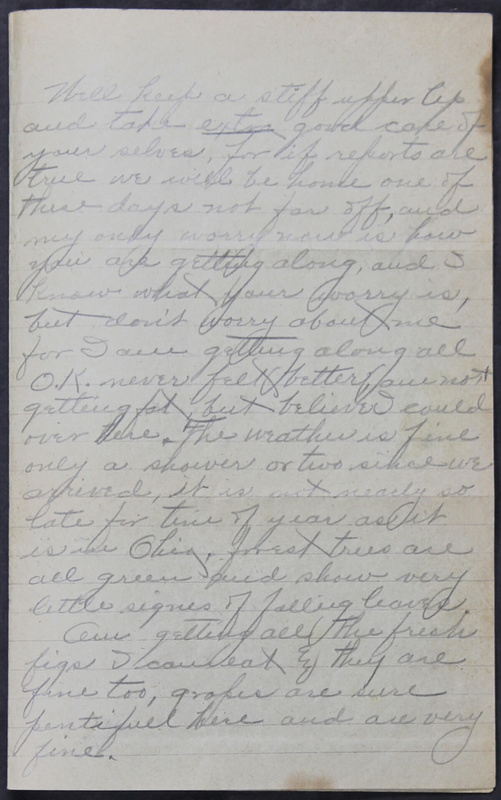 Well keep a stiff upper lip
and take extra good care of
your selves, for if reports are
true we will be home one of
these days not far off, and
my only worry now is how
you are getting along, and I
know what your worry is,
but don't worry about me
for I am getting along all
O.K. never felt better, am not
getting fat, but believe I could
over here. The weather is fine
only a shower or two since we
arrived, it is not nearly so
late for time of year as it
is in Ohio, forest trees are
all green and show very
little signes of falling leaves.
Am getting all the fresh
figs I can eat & they are
fine too, grapes are sure
pentifuel here and are very
fine.